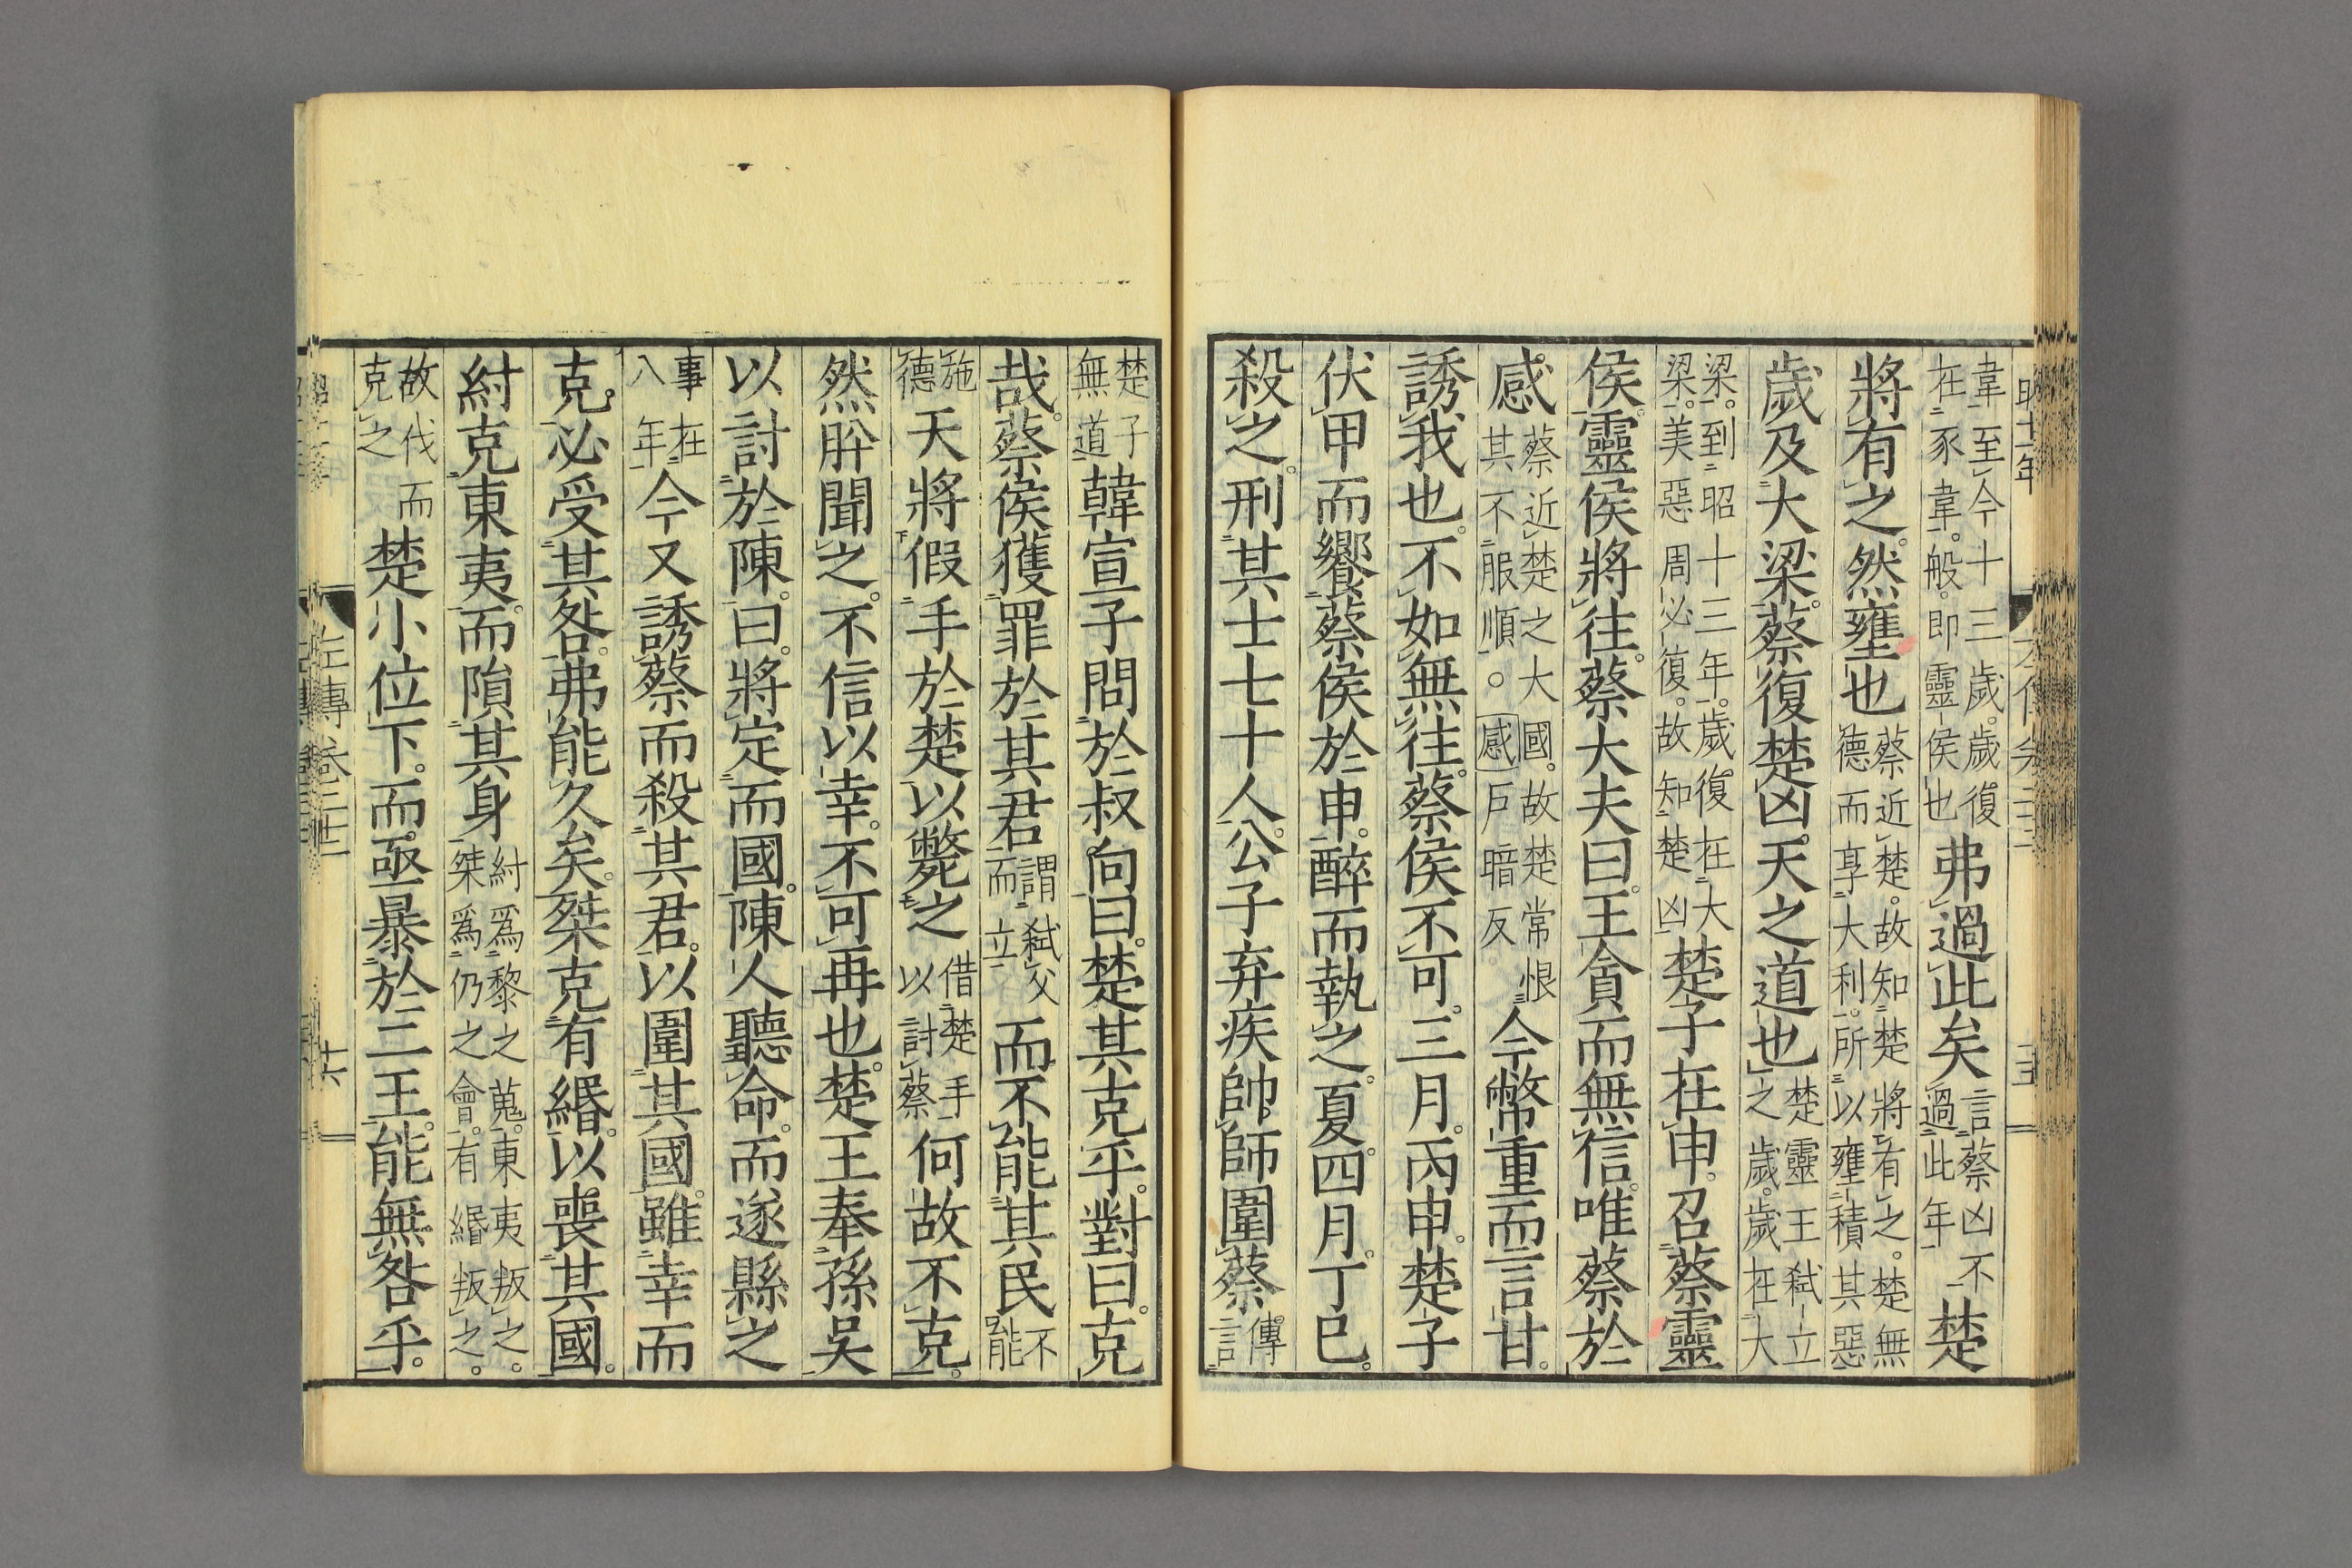 韋至今十三歲。歲復在豕韋。般。即靈侯也弗過此矣言蔡凶不過此年楚
將有之。然壅也蔡近楚。故知楚將有之。楚無德而享大利。所以壅積其惡
歲及大梁。蔡復楚凶。天之道也楚靈王弒立之歲。歲在大
梁。到昭十三年。歲復在大梁。美惡周必復。故知楚凶楚子在申。召蔡靈
侯。靈侯將往。蔡大夫曰。王貪而無信。唯蔡於
感蔡近楚之大國。故楚常恨其不服順。○感戶暗反。今幣重而言甘。
誘我也。不如無往。蔡侯不可。三月。丙申。楚子
伏甲而饗蔡侯於申。醉而執之。夏四月。丁巳。
殺之。刑其士七十人。公子弃疾帥師圍蔡傳言
楚子無道韓宣子問於叔向曰。楚其克乎。對曰。克
哉。蔡侯獲罪於其君謂弒父而立而不能其民不能
施德天將假手於楚以斃之借楚手以討蔡何故不克。
然肸聞之。不信以幸。不可再也。楚王奉孫吳
以討於陳。曰。將定而國。陳人聽命。而遂縣之
事在八年今又誘蔡而殺其君。以圍其國。雖幸而
克。必受其咎。弗能久矣。桀克有緡。以喪其國。
紂克東夷。而隕其身紂爲黎之蒐。東夷叛之。桀爲仍之會。有緡叛之。
故伐而克之楚小位下。而亟暴於二王。能無咎乎。
左傳卷二十二
十六